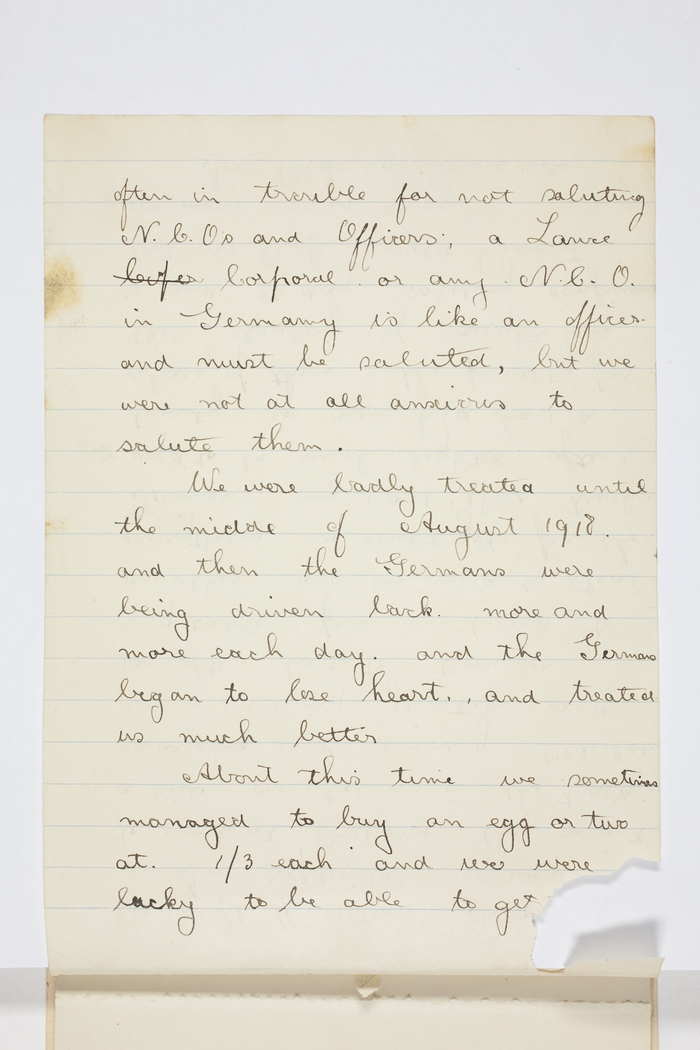 often in trouble for not saluting
N.C.Os and Officers; a Lance
Corporal or any N.C.O.
in Germany is like an officer
and must be saluted, but we
were not at all anxious to
salute them.
We were badly treated until
the middle of August 1918.
and then the Germans were
being driven back. more and
more each day. and the Germans
began to lose heart., and treated
us much better
About this time we sometimes
managed to buy an egg or two
at. 1/3 each and we were
lucky to be able to get